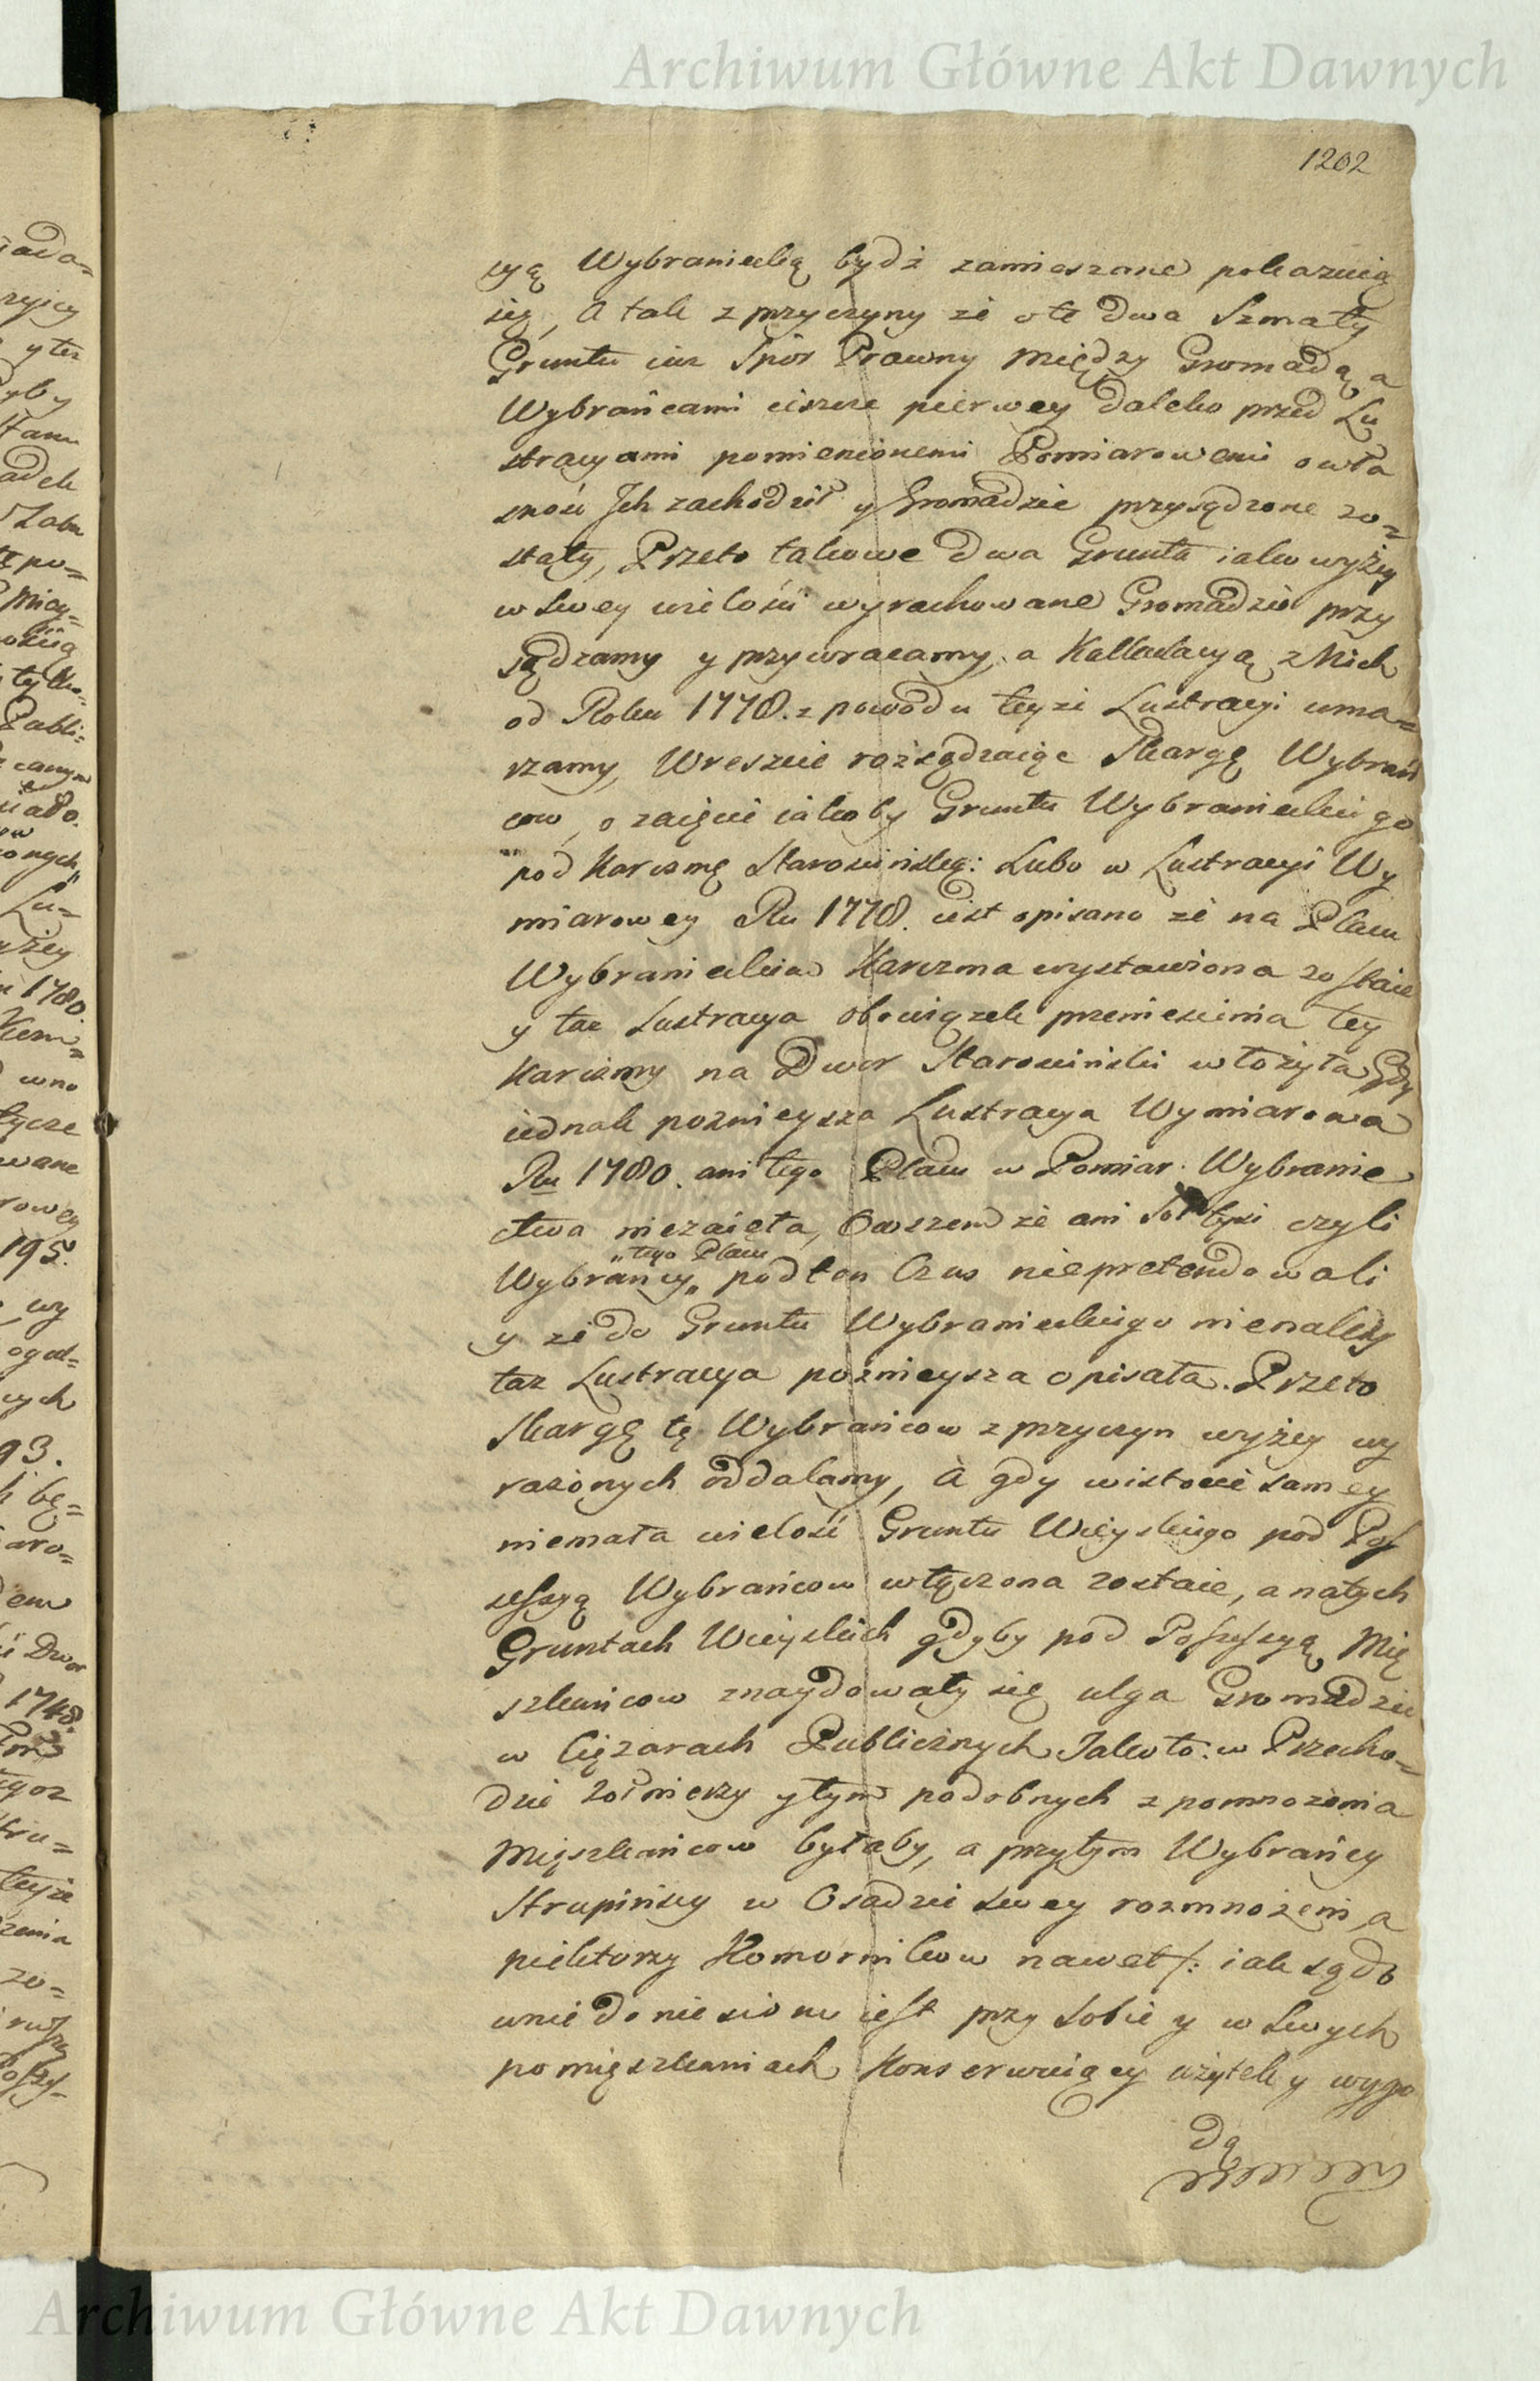 Archiwum Główne Akt Dawnych
1202
cyą Wybraniecką bydź zamieszane pokazuią
się, A tak z przyczyny że o te dwa Szmaty
Gruntu iuż Spór Prawny Między Gromadą a
Wybrańcami ieszcze pierwey daleko przed Lu
stracyami pomienionemi Pomiarowemi o wła
sność Ich zachodził y Gromadzie przysądzone zo=
stały, Przeto takowe dwa Grunta iako wyżey
w swey wielości wyrachowane Gromadzie przy
sądzamy y przywracamy, a Kalkulacyą z Nich
od Roku 1778. z powodu teyże Lustracyi uma=
rzamy, Wreszcie rozsądzaiąc Skargę Wybrań
cow, o zaięcie iakoby Gruntu Wybranieckiego
pod Karczmę Starościńską: Lubo w Lustracyi Wy
miarowey Ru 1778. iest opisano że na Placu
Wybranieckim Karczma wystawiona zostaie
y taż Lustracya obowiązek przeniesienia tey
Karczmy na Dwor Starościński włożyła, Gdy
iednak poznieysza Lustracya Wymiarowa
Ru 1780. ani tego Placu w Pomiar Wybranie
ctwa niezaięła, Owszem że ani Sołtysi czyli
„tego Placu
Wybrańcy„ pod ten Czas niepretendowali
y że do Gruntu Wybranieckiego nienależy
taż Lustracya poznieysza opisała. Przeto
Skargę tę Wybrańcow z przyczyn wyżey wy
rażonych oddalamy, A gdy w istocie samey
niemała wielość Gruntu Wieyskiego pod Pos
sessyą Wybrańcow włączona zostaie, a na tych
Gruntach Wieyskich gdyby pod Possessyą Mię
szkańcow znaydowały się ulga Gromadzie
w Ciężarach Publicznych Jako to: w Przecho=
dzie Żołnierzy y tym podobnych z pomnożenia
Mięszkańcow byłaby, a przytym Wybrańcy
Strupińscy w Osadzie swey rozmnożenia
niektorzy Komornikow nawet /: iak sądo
wnie doniesiono iest przy sobie y w swych
pomięszkaniach Konserwuiący użytek y wygo
dą
Archiwum Główne Akt Dawnych